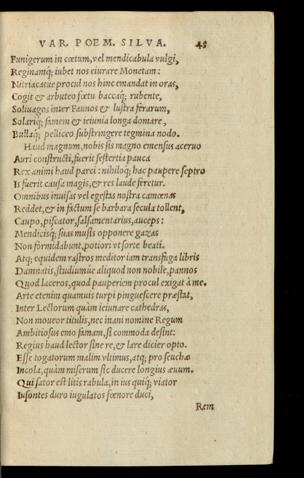 VAR. POEM. SILVA. 45
Funigerum in cœtum, vel mendicabula vulgi,
Reginamq; iubet nos eiurare Monetam:
Nitriacatue procul nos hinc emandat in oras,
Cogit & arbuteo fœtu baccaq; rubente,
Soliuagos inter Faunos & lustra ferarum,
Solariq; famem & ieiunia longa domare,
Bullaq; pelliceo substringere tegmina nodo.
Haud magnum, nobis sis magno emensus aceruo
Auri constructi, fuerit sestertia pauca
Rex animi haud parci: nihiloq; hac paupere septro
Is fuerit causa magis, & res laude feretur.
Omnibus inuisas vel egestas nostra camœnas
Reddet, & in fictum se barbara secula tollent,
Caupo, piscator, salsamentarius, auceps:
Mendicisq; suas musis opponere gazas
Non formidabunt, potiori vt sorte beati.
Atq; equidem rastros meditor iam transfuga libris
Damnatis, studiumue aliquod non nobile, pannos
Quod laceros, quod pauperiem procul exigat à me.
Arte etenim quamuis turpi pinguescere præstat,
Inter Lectorum quàm ieiunare cathedras,
Non moueor titulis, nec inani nomine Regum
Ambitiosus emo famam, si commoda desint:
Regius haud lector sine re, & lare dicier opto.
Esse togatorum malim vltimus, atq; pro seuchæ
Incola, quàm miserum sic ducere longius æuum.
Qui sator est litis rabula, in ius quiq; viator
Insontes duro iugulatos fœnore duci,
Rem